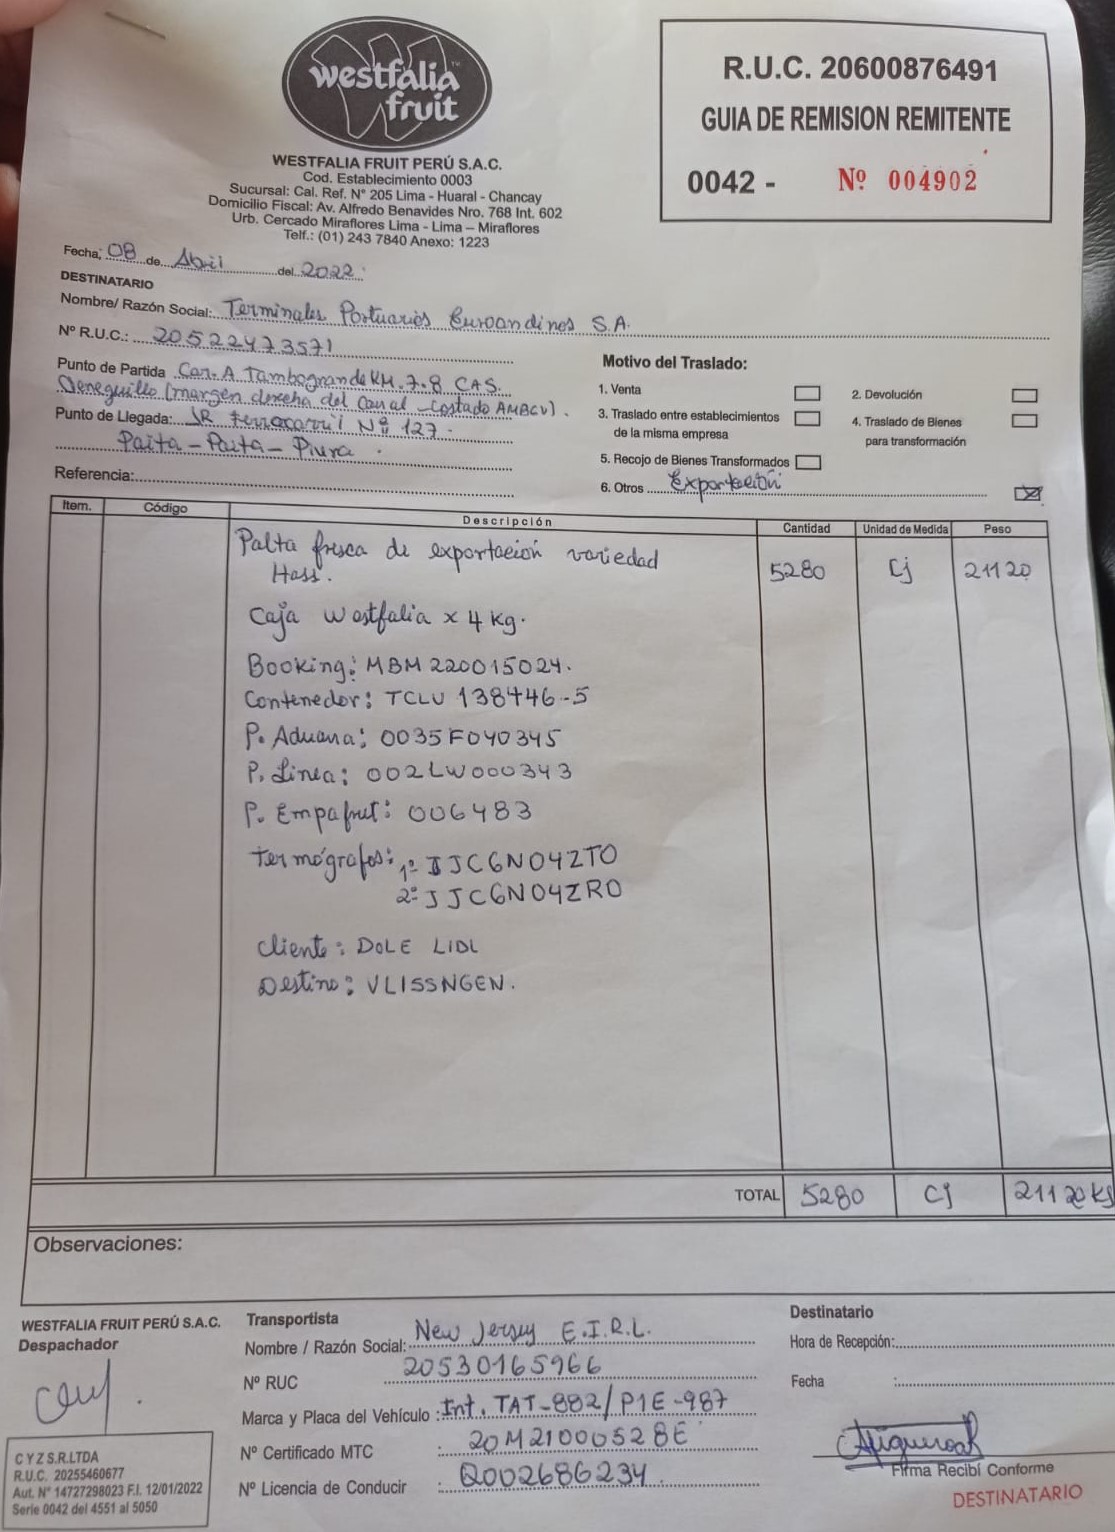 westfalia™
fruit
WESTFALIA FRUIT PERÚ S.A.C.
Cod. Establecimiento 0003
Sucursal: Cal. Ref. N° 205 Lima - Huaral - Chancay
Domicilio Fiscal: Av. Alfredo Benavides Nro. 768 Int. 602
Urb. Cercado Miraflores Lima - Lima – Miraflores
Telf.: (01) 243 7840 Anexo: 1223
R.U.C. 20600876491
GUIA DE REMISION REMITENTE
0042 - Nº 004902
Fecha; 08 de Abril del 2022.
DESTINATARIO
Nombre/ Razón Social: Terminales Portuarios Euroandinos S.A.
Nº R.U.C.: 20522473571
Punto de Partida Car. A Tambogrande KM. 7.8 CAS.
Jeneguillo (margen derecha del Canal - Costado AMBEV).
Punto de Llegada: JR Ferrocarril Nº 127.
Paita - Paita - Piura.
Referencia:
Motivo del Traslado:
1. Venta
2. Devolución
3. Traslado entre establecimientos
de la misma empresa
4. Traslado de Bienes
para transformación
5. Recojo de Bienes Transformados
6. Otros Exportación
Item. Código Descripción Cantidad Unidad de Medida Peso
Palta fresca de exportación variedad
Hass. 5280 Cj 21120
Caja Westfalia x 4 kg.
Booking: MBM220015024.
Contenedor: TCLU 138446-5
P. Aduana: 0035F040345
P. Linea: 002LW000343
P. Empafrut: 006483
Termógrafos: 1º JJC6N04ZT0
2º JJC6N04ZR0
Cliente: DOLE LIDL
Destino: VLISSNGEN.
TOTAL 5280 Cj 21120 kg
Observaciones:
WESTFALIA FRUIT PERÚ S.A.C.
Despachador
Transportista
Nombre / Razón Social: New Jersey E.I.R.L.
Nº RUC 20530165966
Marca y Placa del Vehículo : Int. TAT-882/P1E-987
Nº Certificado MTC : 20M21000528E
Nº Licencia de Conducir : Q002686234.
Destinatario
Hora de Recepción:
Fecha :
Firma Recibí Conforme
DESTINATARIO
C Y Z S.R.LTDA
R.U.C. 20255460677
Aut. N° 14727298023 F.I. 12/01/2022
Serie 0042 del 4551 al 5050